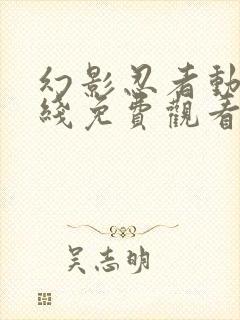 幻影忍者動
綫免費觀看
吴志明